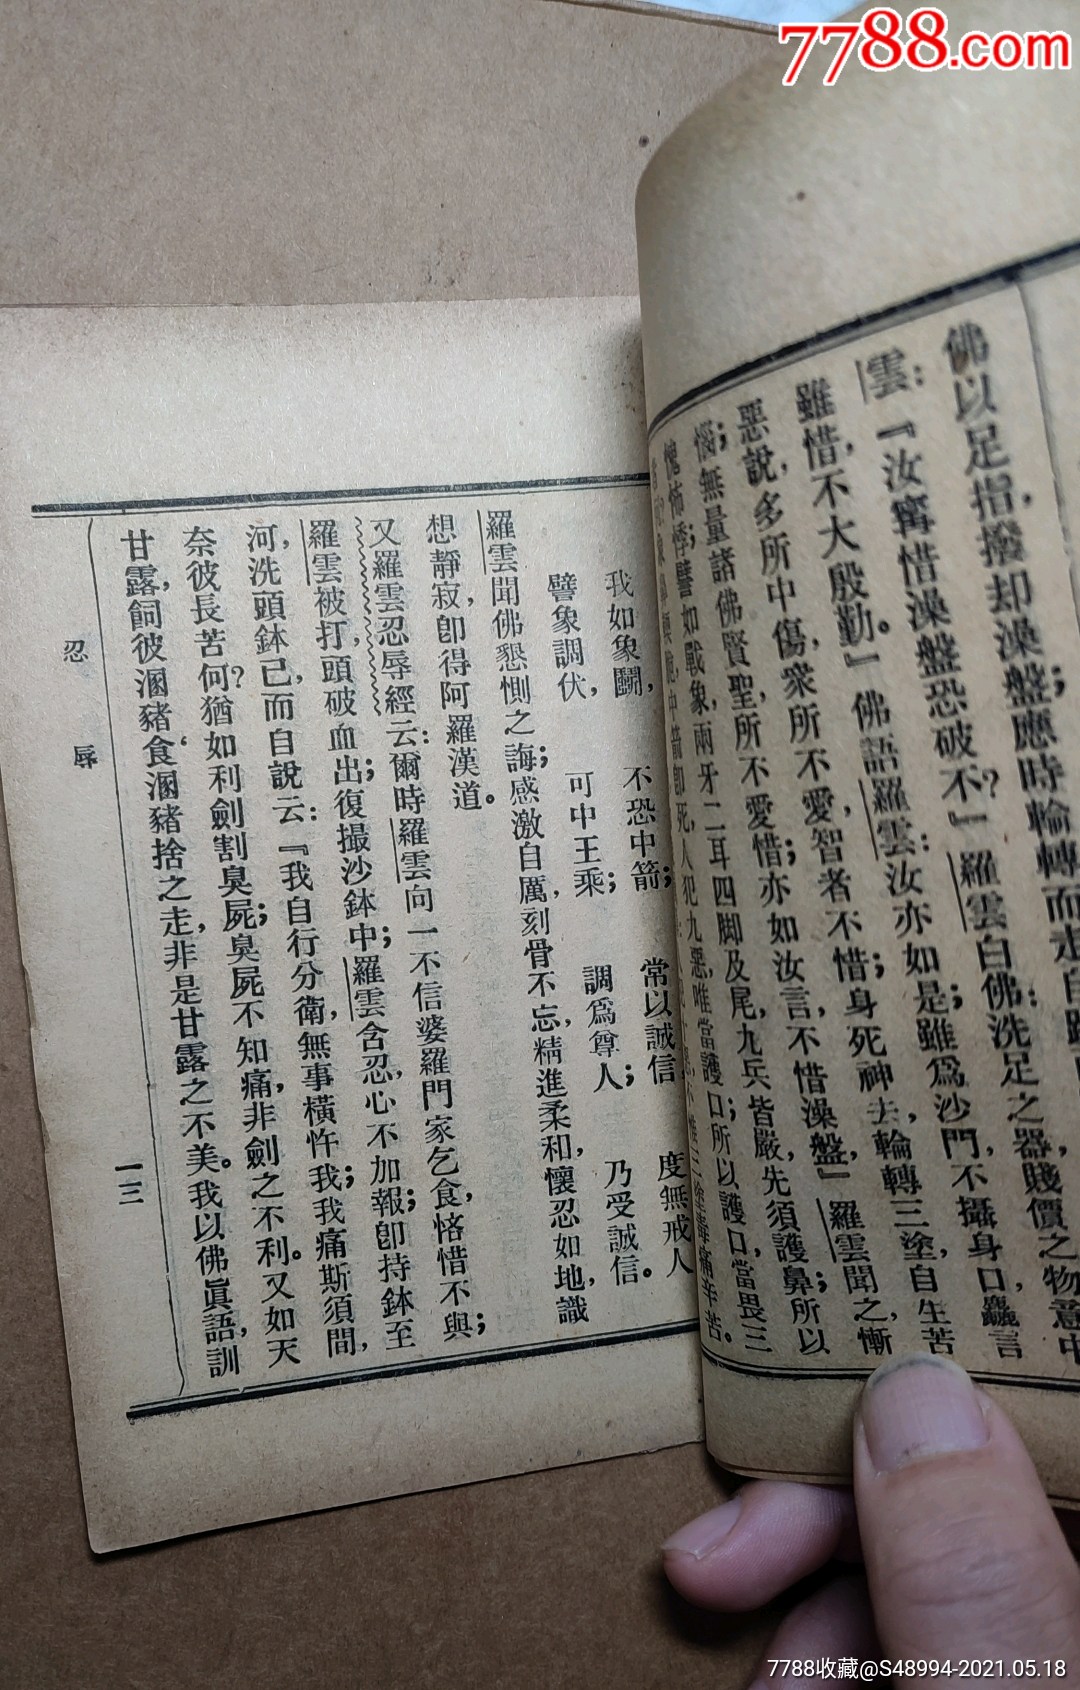 7788.com
佛以足指,撥却澡盤;應時輪轉而走自
雲:『汝寗惜澡盤恐破不?』羅雲白佛:洗足之器,賤價之物,意中
雖惜,不大殷勤。』佛語羅雲:汝亦如是;雖爲沙門,不攝身口,麤言
惡說,多所中傷,衆所不愛,智者不惜;身死神去,輪轉三塗,自生苦
惱;無量諸佛賢聖,所不愛惜;亦如汝言,不惜澡盤』羅雲聞之,慚
愧怖悸。譬如戰象,兩牙二耳四脚及尾,九兵皆嚴,先須護鼻;所以
中箭卽死,人犯九惡,唯當護口;所以護口,當畏三
痛辛苦。
我如象鬪, 不恐中箭; 常以誠信 度無戒人
譬象調伏, 可中王乘; 調爲尊人; 乃受誠信。
羅雲聞佛懇惻之誨;感激自厲,刻骨不忘,精進柔和,懷忍如地,識
想靜寂,卽得阿羅漢道。
又羅雲忍辱經云:爾時羅雲向一不信婆羅門家乞食,悋惜不與;
羅雲被打,頭破血出;復撮沙鉢中;羅雲含忍,心不加報;卽持鉢至
河,洗頭鉢已,而自說云:『我自行分衛,無事橫忤我;我痛斯須間,
奈彼長苦何?猶如利劍割臭屍;臭屍不知痛,非劍之不利。又如天
甘露,飼彼溷豬食,溷豬捨之走,非是甘露之不美。我以佛眞語,訓
忍辱
一三
7788收藏@S48994-2021.05.18